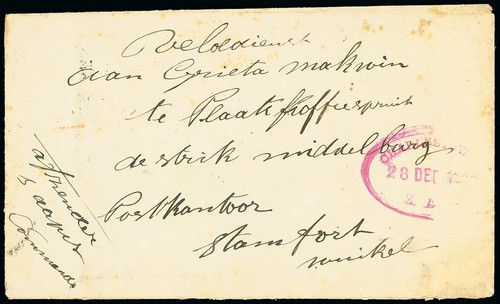 Veldedienst
Aan Grieta makwin
te Plaatkoffiespruit
destrik middelburg
Postkantoor
Stamfort
winkel
afzender
Commando
28 DEC
Z.